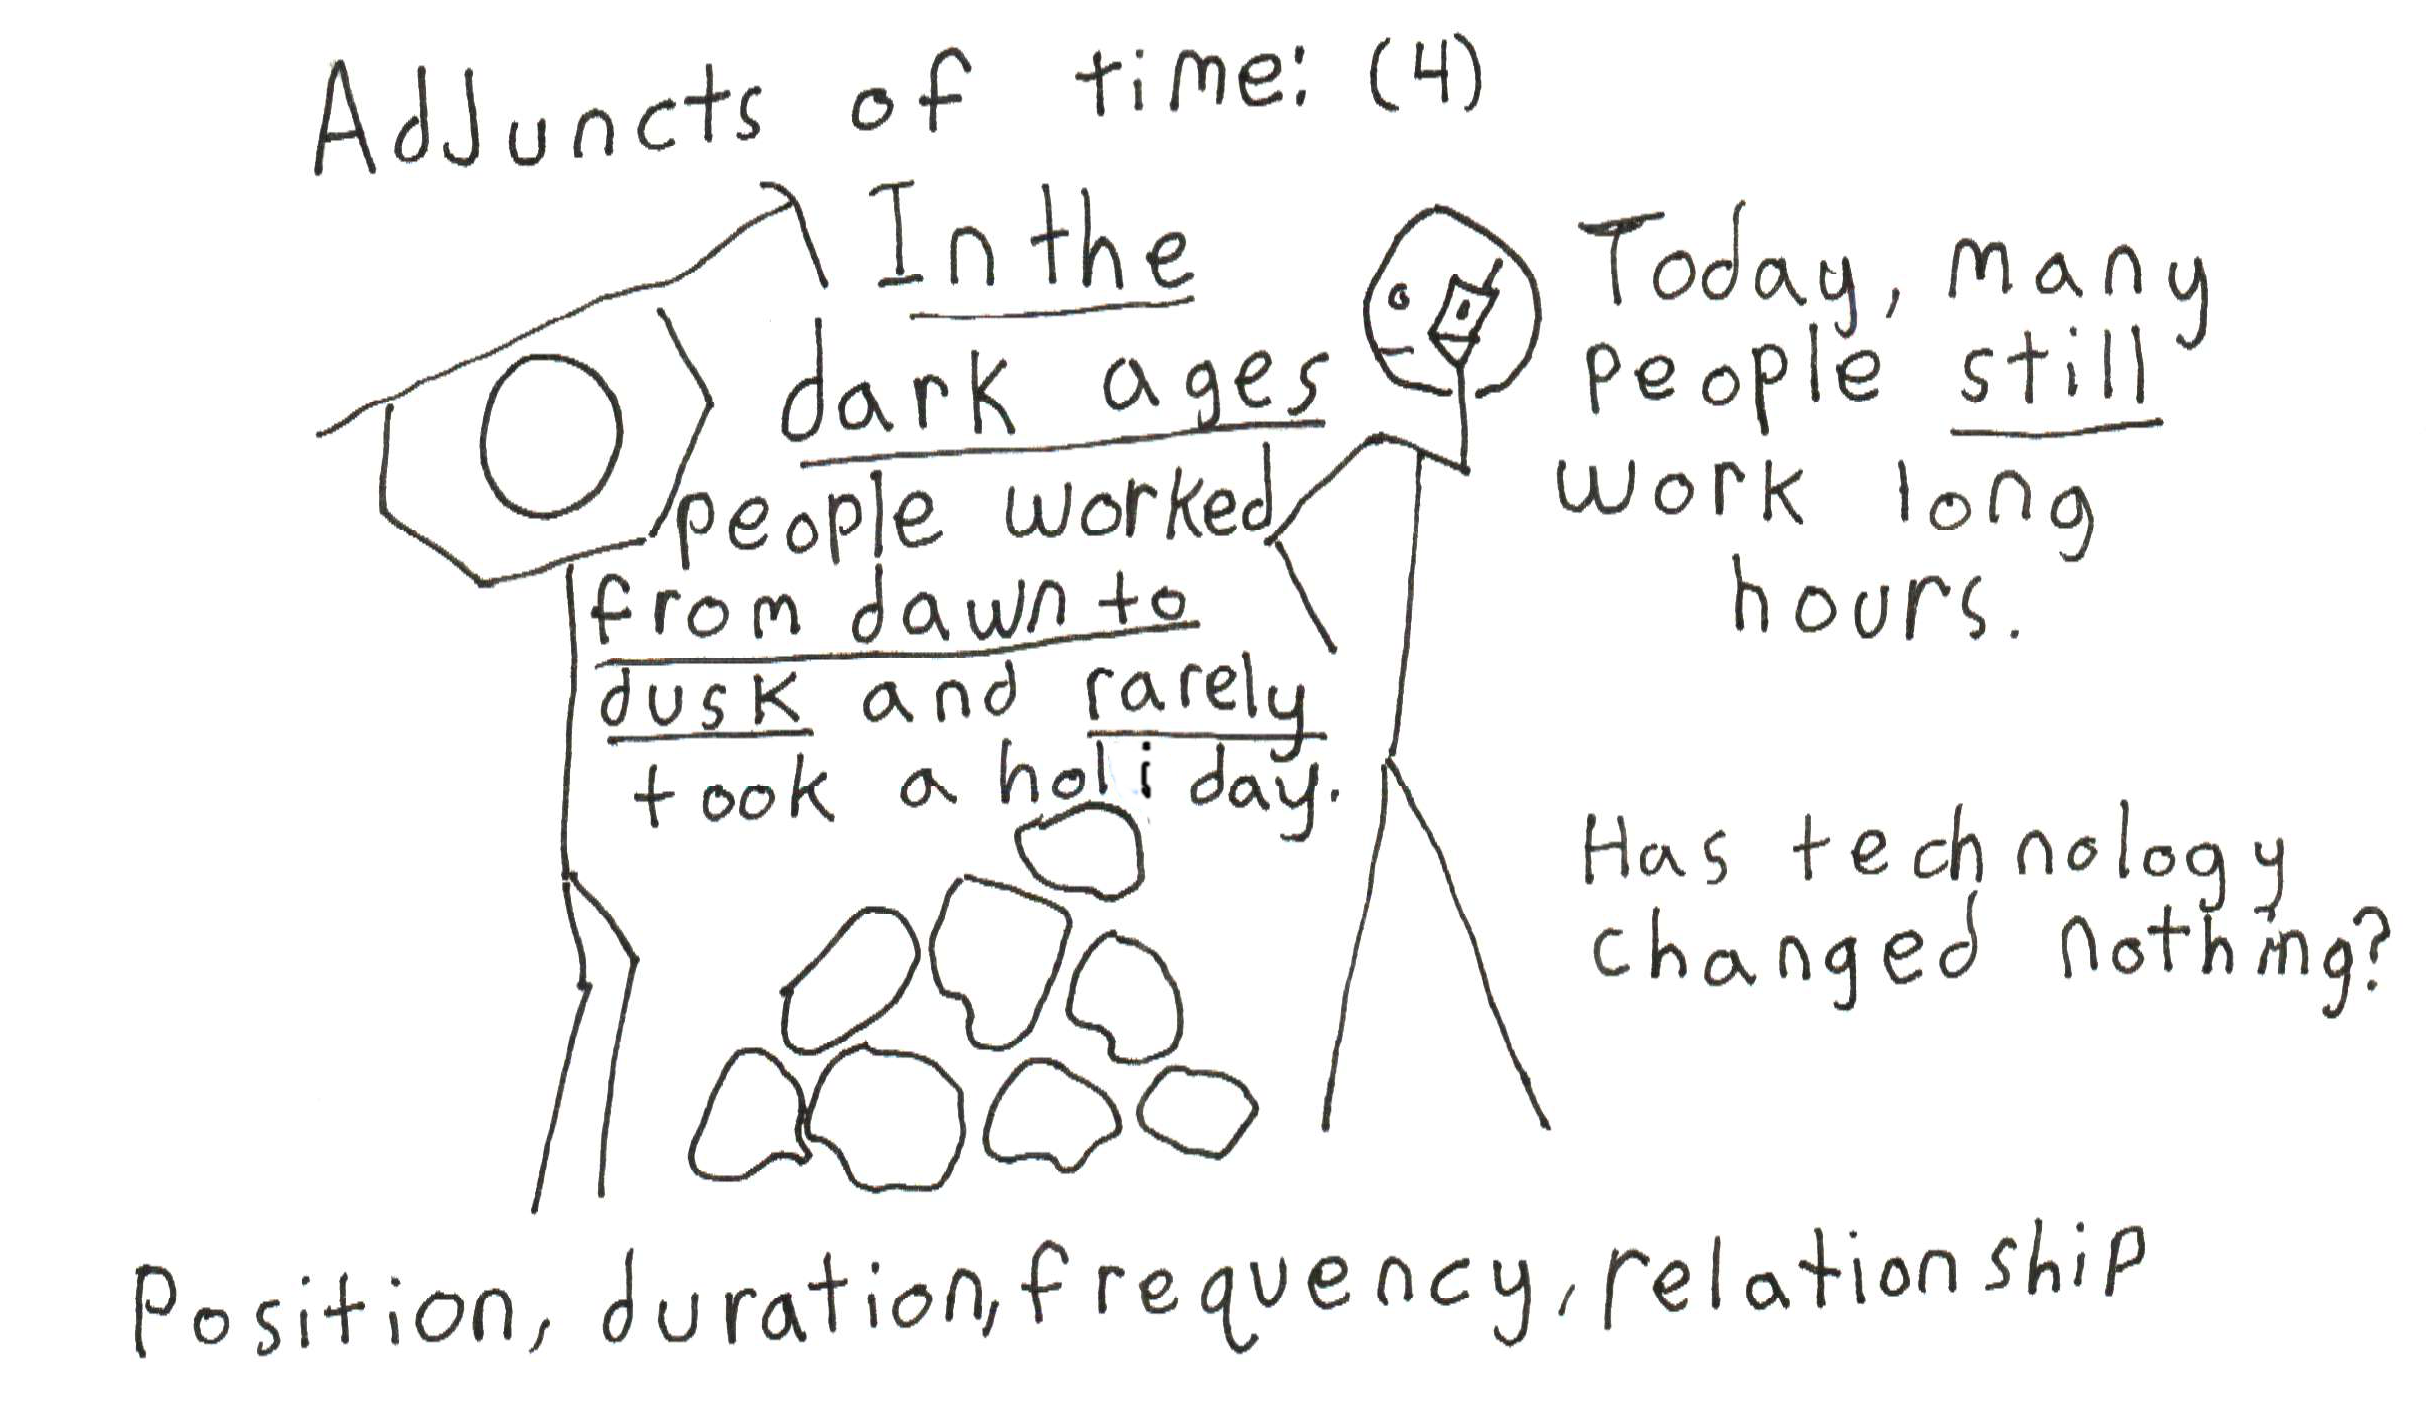 AdJuncts of time: (4)
In the
dark ages
people worked
from dawn to
dusk and rarely
took a holiday.
Today, many
people still
work long
hours.
Has technology
changed nothing?
Position, duration, frequency, relationship